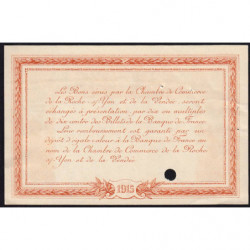 Les Bons émis par la Chambre de Commerce
de la Roche-s/-Yon et de la Vendée seront
échangés à présentation, par dix ou multiples
de dix contre des Billets de la Banque de France.
Leur remboursement est garanti par un
dépôt d'égale valeur à la Banque de France au
nom de la Chambre de Commerce de la Roche-
s/-Yon et de la Vendée.
1915